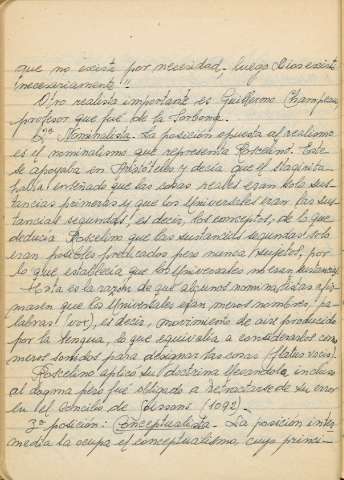 que no existe por necesidad, luego Dios existe
necesariamente".
Otro realista importante es Guillermo Champeaux
profesor que fué de la Sorbona.
2ª Nominalista. La posición opuesta al realismo
es el nominalismo que representa Roscelino. Este
se apoyaba en Aristóteles y decía que el Stagirita
había enseñado que las cosas reales eran sola sus-
tancias primeras y que los Universales eran las sus-
tancias segundas, es decir, los conceptos, de lo que
deducía Roscelino que las sustancias segundas solo
eran posibles predicados pero nunca sujetos, por
lo que establecía que los Universales no eran sustancias
Esta es la razón de que algunos nominalistas afir-
masen que los Universales eran meros nombres, pa-
labras (vox), es decir, movimiento de aire producido
por la lengua, lo que equivalía a considerarlos como
meros sonidos para designar las cosas (flatus vocis).
Roscelino aplicó su doctrina llevándola incluso
al dogma pero fué obligado a retractarse de su error
en el Concilio de Soissons (1092).
3ª posición: Conceptualista. La posición inter-
media la ocupa el conceptualismo, cuyo princi-